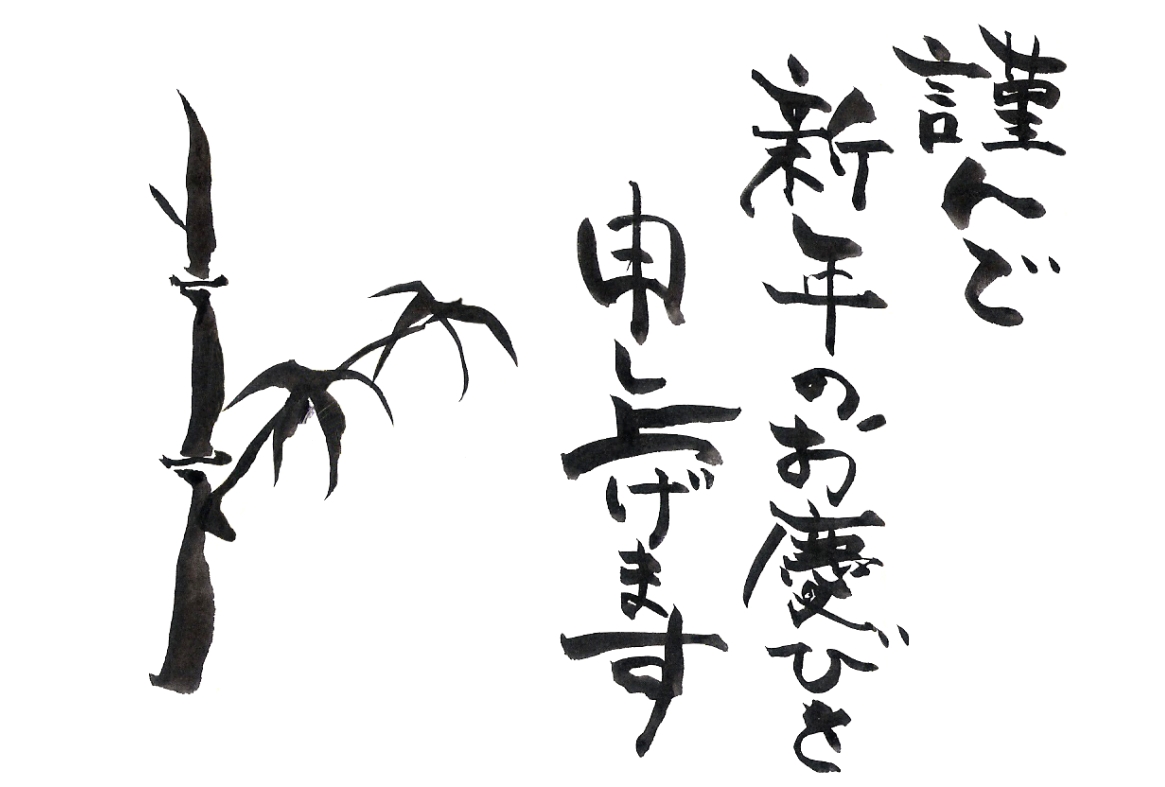 謹んで
新年のお慶びを
申し上げます